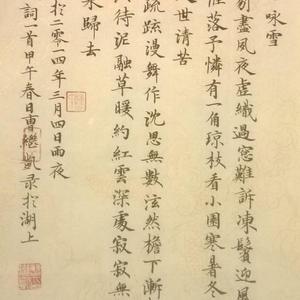 咏雪
别盡風夜虚織過窓難訴凍鬢迎風
惟落予憐有一角瓊枝看小園寒暑冬
世清苦
疏疏漫舞作沈思無數泫然檐下漸
待泥融草暖約紅雲深處寂寂無
來歸去
於二零一四年三月四日雨夜
詞一首甲午春日曹繼凱录於湖上